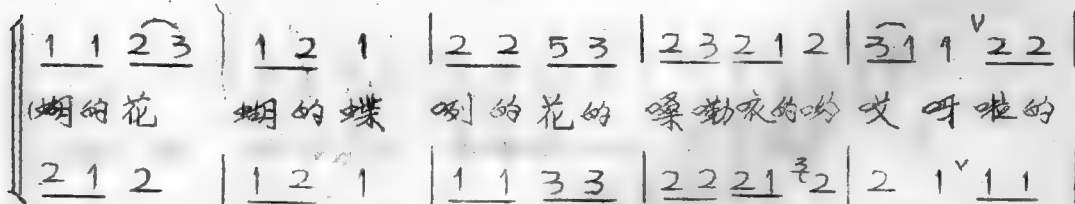 1 1 2 3 | 1 2 1 | 2 2 5 3 | 2 3 2 1 2 | 3 1 1 ∨ 2 2 |
(蝴的花 蝴的蝶 咧的花的 嗓嘞衣的哟 哎呀啦的
2 1 2 | 1 2 1 | 1 1 3 3 | 2 2 2 1 3 2 | 2 1 ∨ 1 1 |